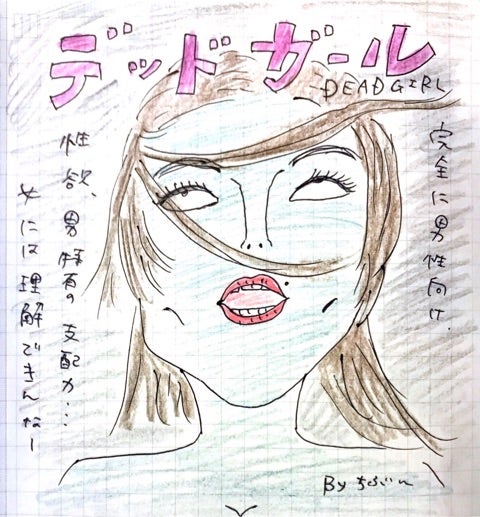 デッドガール
DEADGIRL
完全に男性向け.
性欲、男特有の支配力...
女には理解できんなー
By ちゔぃん